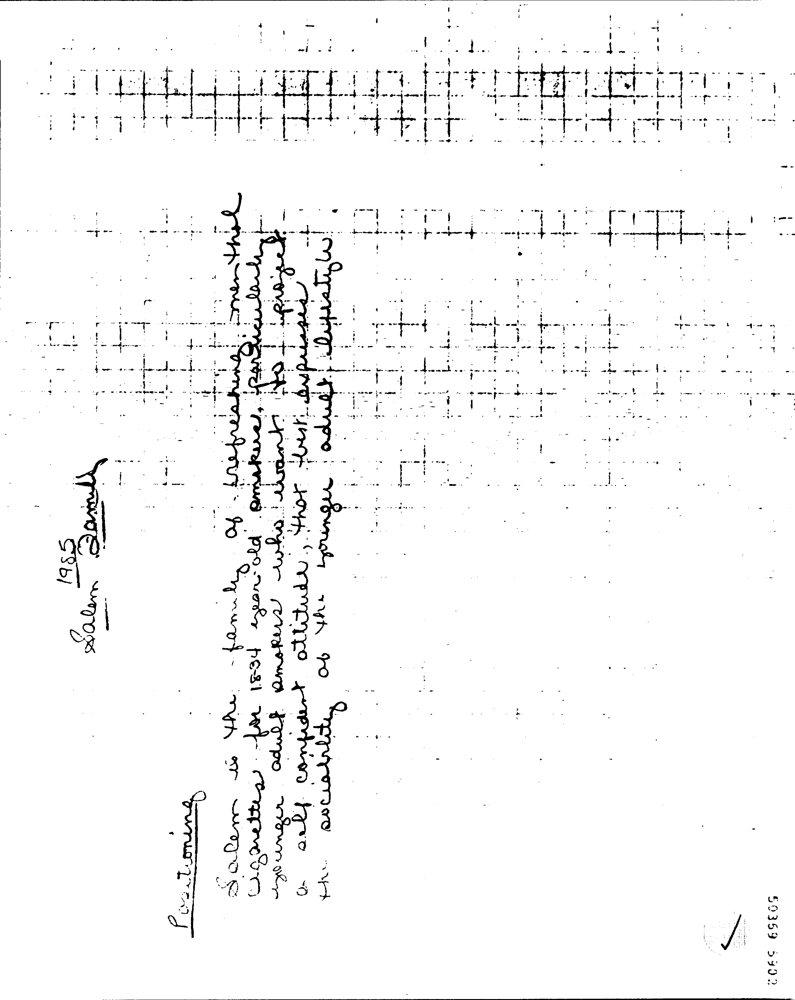 1985
Salem Family
Positioning
Salem is the family of refreshing menthol
cigarettes for 18-34 year-old smokers, particularly
younger adult smokers who want to project
a self confident attitude, that best expresses
the sociability of the younger adult lifestyle